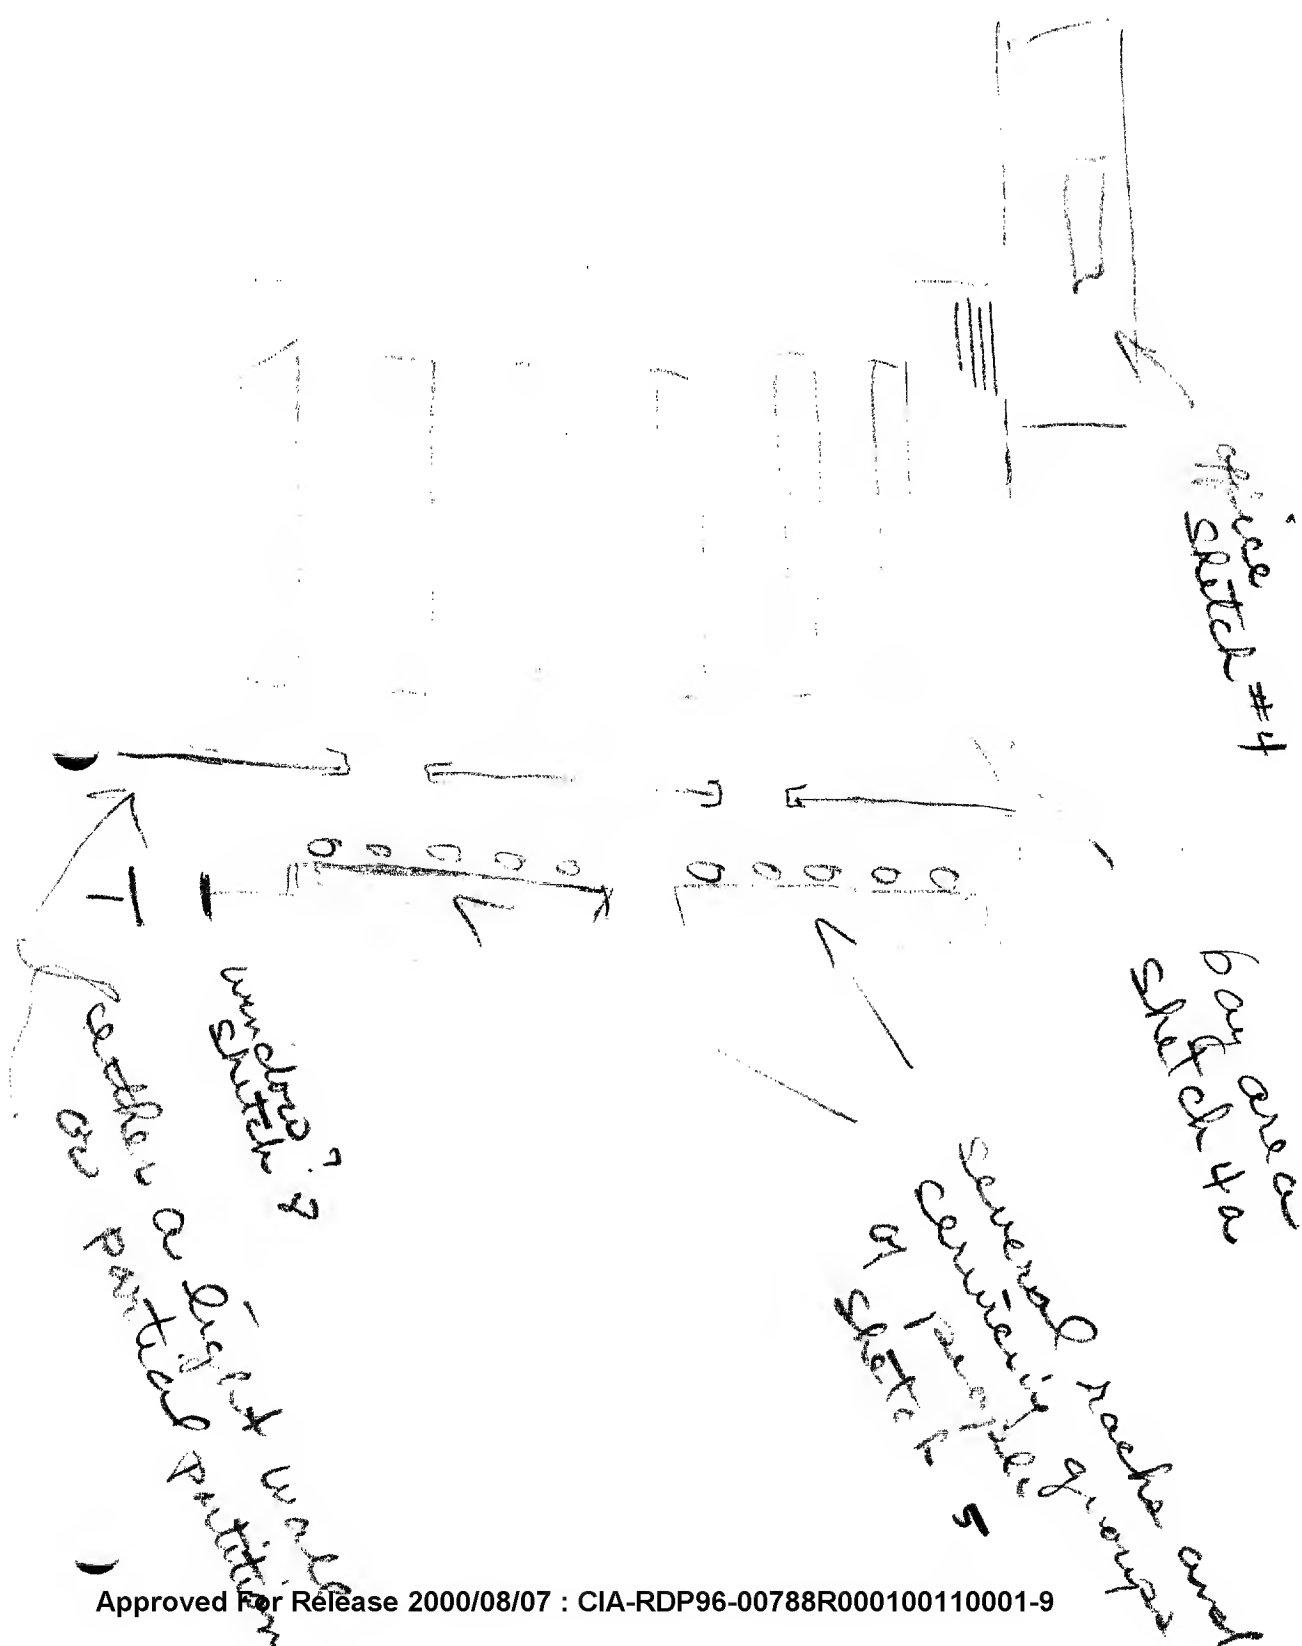 office
sketch #4
bay area
sketch 4a
several racks and
groups
of people
sketch 5
window?
sketch
either a light wall
or partial partition
Approved For Release 2000/08/07 : CIA-RDP96-00788R000100110001-9